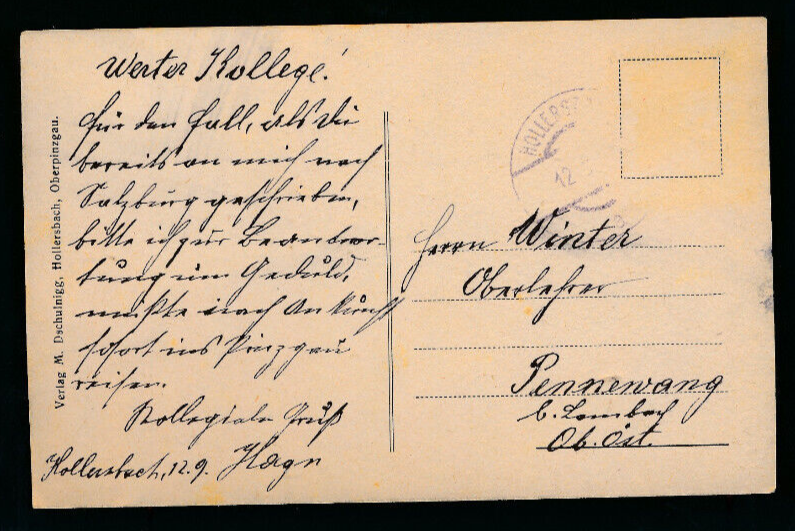 Werter Kollege!
Für den Fall, als Sie
bereits an mich nach
Salzburg geschrieben,
bitte ich zur Beantwor-
tung um Geduld,
mußte nach Ankunft
sofort ins Pinzgau
reisen.
Kollegiale Gruß
Hollersbach, 12.9. Hagn
Verlag M. Dschulnigg, Hollersbach, Oberpinzgau.
HOLLERS
12
Herrn Winter
Oberlehrer
Pennewang
b. Lambach
Ob. Öst.